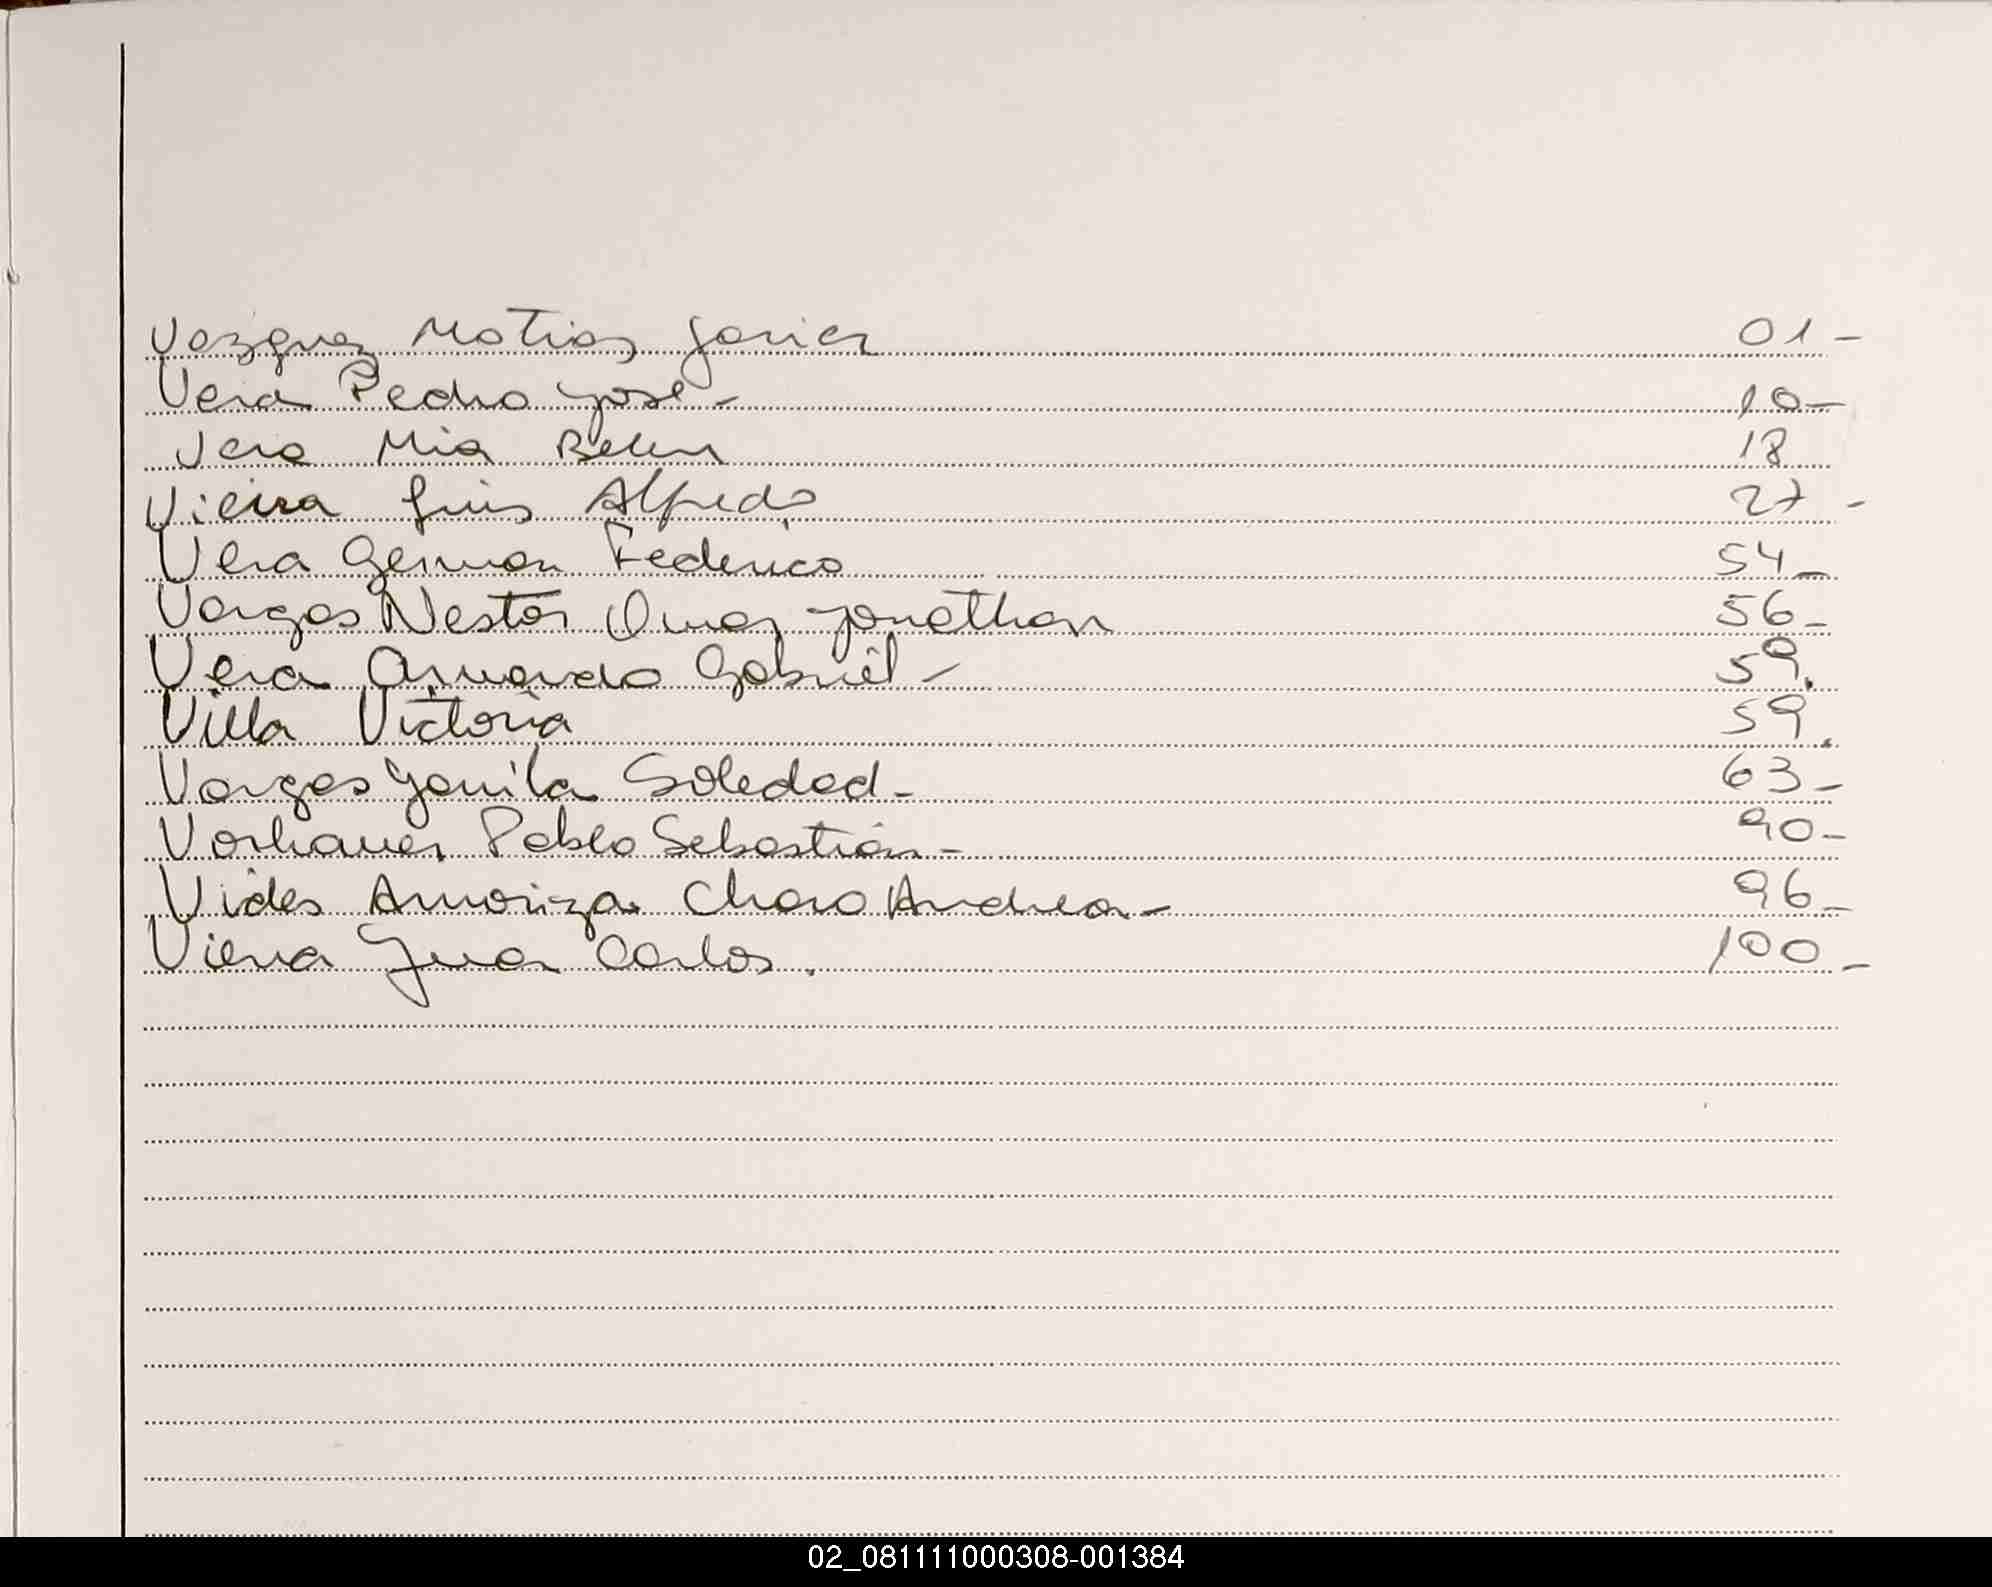 Vazquez Matias Javier 01-
Vera Pedro José - 10-
Vera Mia Belen 18
Vieira Luis Alfredo 27 -
Vera German Federico 54-
Vargas Nestor Omar Jonathan 56-
Vera Armando Gabriel - 59.
Villa Victoria 59.
Vargas Yamila Soledad - 63-
Vorhauer Pablo Sebastián - 90-
Vides Amoriza Charo Andrea - 96-
Viera Juan Carlos. 100-
02_081111000308-001384